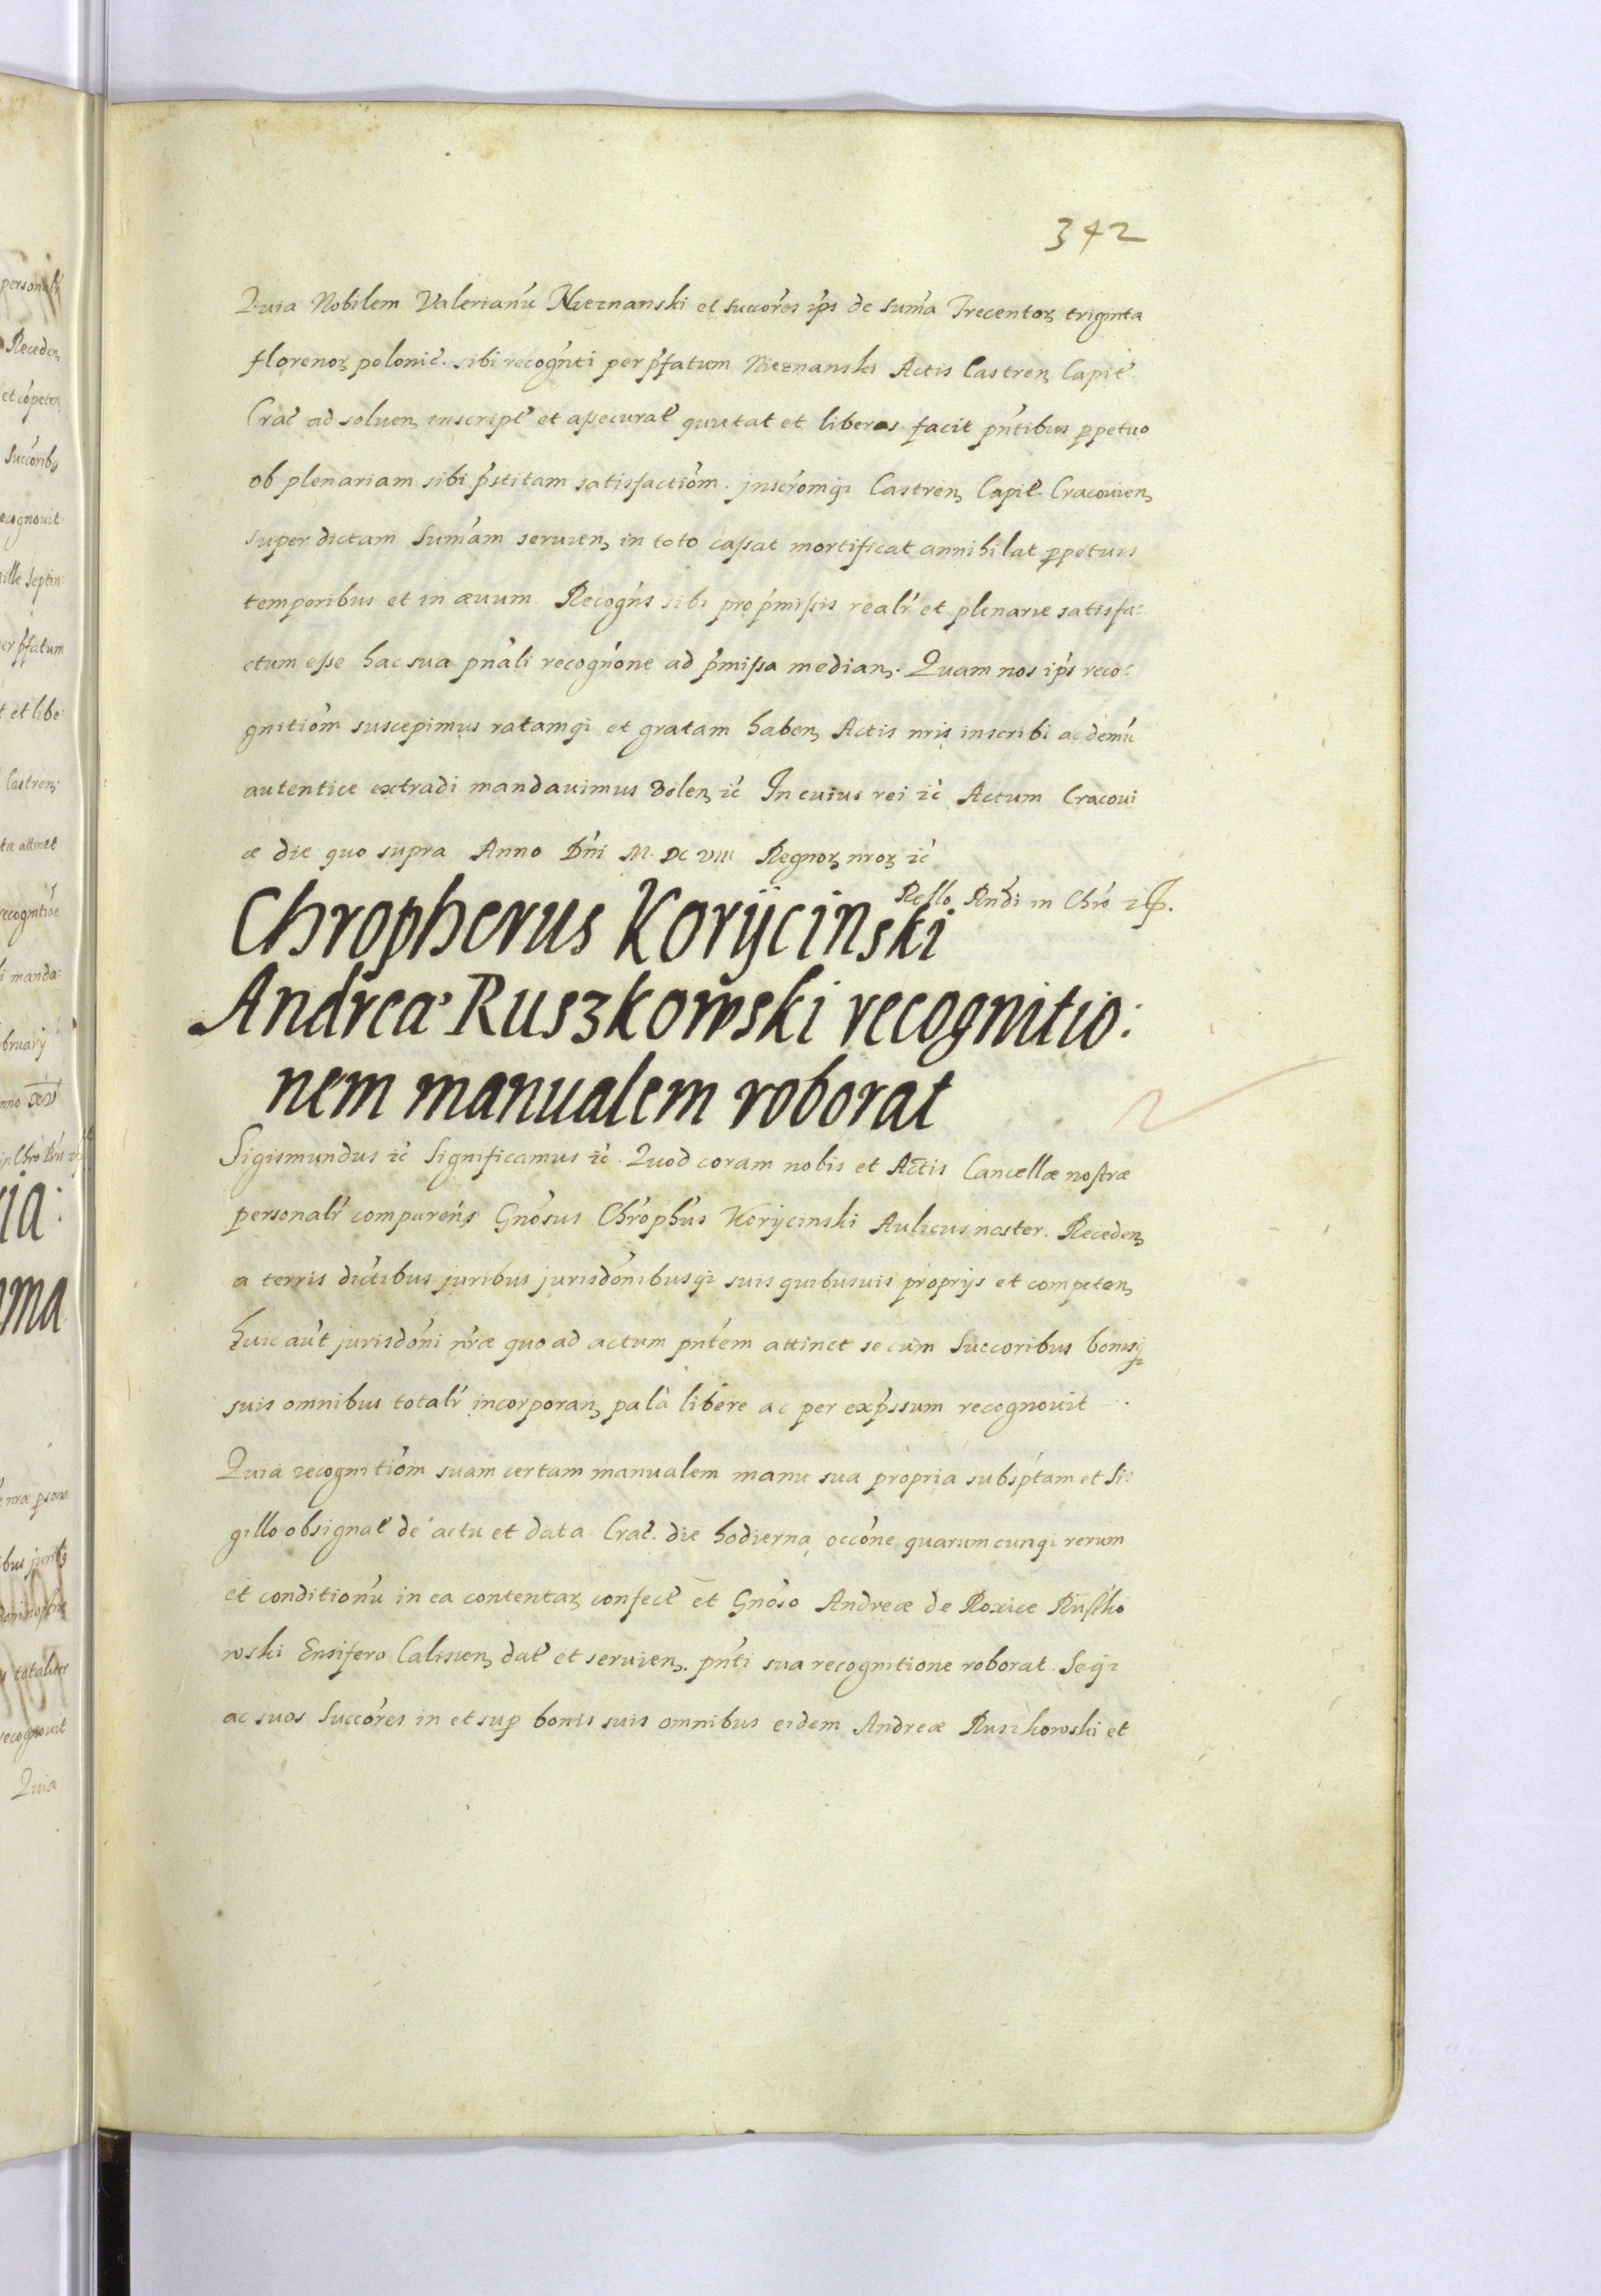 342
Quia Nobilem Valerianu Nieznanski et succores ips de suma Trecentoꝝ triginta
florenoꝝ polonic. sibi recognti per pfatum Nieznanski Actis Castren, Capit.
Crac ad soluen, inscript et assecurat quitat et liberos facit pntibus ppetuo
ob plenariam sibi pstitam satisfactiom. jnscromqȝ Castren, Capit. Cracouien,
super dictam Sumam seruien, in toto cassat mortificat annihilat ppetuis
temporibus et in æuum Recogns sibi pro pmissis realr et plenarie satisfa:
ctum esse hac sua pnali recognone ad pmissa median,. Quam nos ips reco:
gnitiom suscepimus ratamqȝ et gratam haben, Actis nris inscribi ac demu
autentice extradi mandauimus dolen, ic In cuius rei ic Actum Cracoui
æ die quo supra Anno Dni M. DC VIII Regnoꝝ nroꝝ ic
Rello Rndi in Chro
Chropherus Korÿcinski
Andrea Ruszkowski recognitio:
nem manualem roborat
Sigismundus ic Significamus ic. Quod coram nobis et Actis Cancellæ nostræ
personalr comparens Gnosus Chrophus Korycinski Aulicus noster. Receden,
a terris dictibus juribus jurisdonibusqȝ suis quibusuis proprijs et competen,
huic aut jurisdoni nræ quo ad actum pntem attinet se cum Succoribus bonisqȝ
suis omnibus totalr incorporan, pala libere ac per expssum recognouit
Quia recognitiom suam certam manualem manu sua propria subsptam et si:
gillo obsignat de actu et data Crac. die hodierna occone quarumcunqȝ rerum
et conditionu in ea contentaꝝ confect et Gnoso Andreæ de Roxice Rusko
wski Ensifero Calisien, dat et seruien,. pnti sua recognitione roborat. Seqȝ
ac suos Succores in et sup bonis suis omnibus eidem Andreæ Ruszkowski et